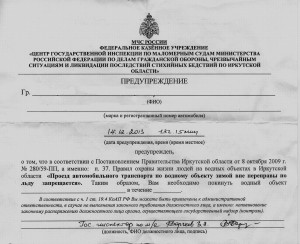 МЧС РОССИИ
ФЕДЕРАЛЬНОЕ КАЗЁННОЕ УЧРЕЖДЕНИЕ
«ЦЕНТР ГОСУДАРСТВЕННОЙ ИНСПЕКЦИИ ПО МАЛОМЕРНЫМ СУДАМ МИНИСТЕРСТВА
РОССИЙСКОЙ ФЕДЕРАЦИИ ПО ДЕЛАМ ГРАЖДАНСКОЙ ОБОРОНЫ, ЧРЕЗВЫЧАЙНЫМ
СИТУАЦИЯМ И ЛИКВИДАЦИИ ПОСЛЕДСТВИЙ СТИХИЙНЫХ БЕДСТВИЙ ПО ИРКУТСКОЙ
ОБЛАСТИ»
ПРЕДУПРЕЖДЕНИЕ
Гр.
(ФИО)
(марка и регистрационный номер автомобиля)
(дата предупреждения, время (время местное)
предупрежден,
о том, что в соответствии с Постановлением Правительства Иркутской области от 8 октября 2009 г.
№ 280/59-ПП, а именно: п. 37. Правил охраны жизни людей на водных объектах в Иркутской
области «Проезд автомобильного транспорта по водному объекту зимой вне переправы по
льду запрещается». Таким образом, Вам необходимо покинуть водный объект
в течение
В соответствии с ч. 1 ст. 19.4 КоАП РФ Вы можете быть привлечены к административной
ответственности, в случае не выполнения законного требования должностного лица, а именно: неповиновение
законному распоряжению должностного лица органа, осуществляющего государственный надзор (контроль).
(должность, ФИО должностного лица, подпись)